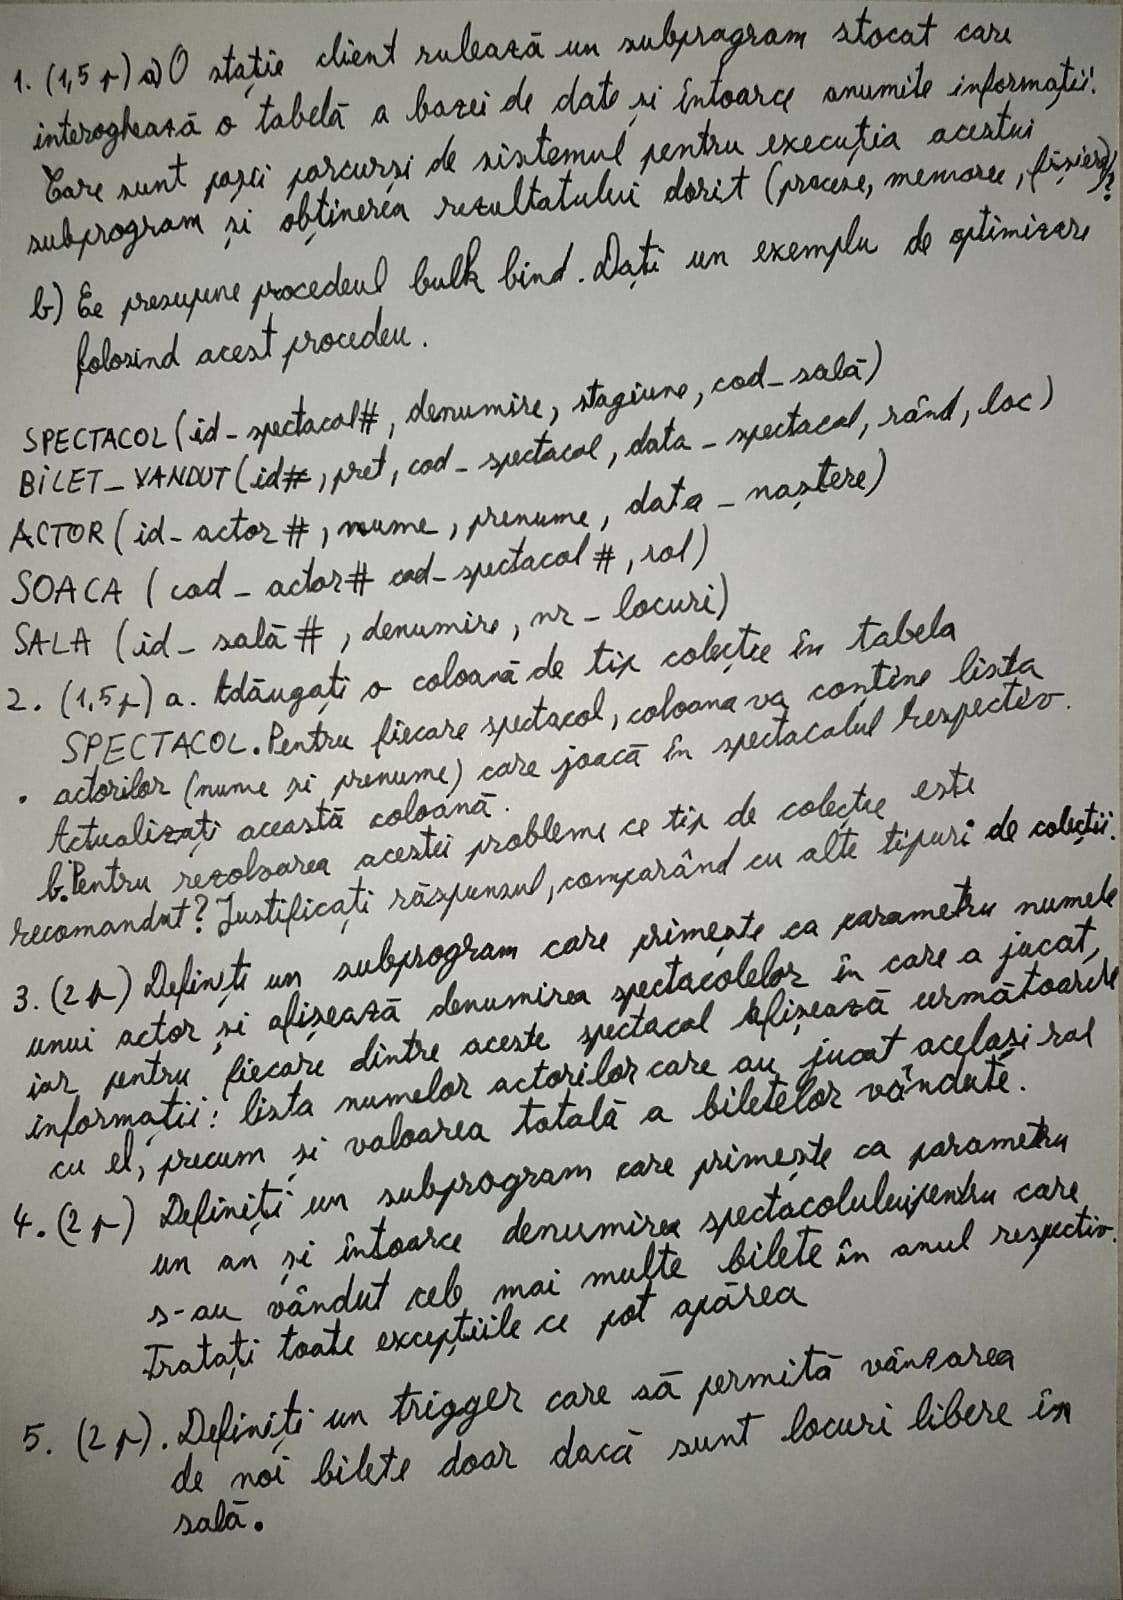 1. (1,5 p) a) O stație client rulează un subprogram stocat care
interoghează o tabelă a bazei de date și întoarce anumite informații.
Care sunt pașii parcurși de sistemul pentru execuția acestui
subprogram și obținerea rezultatului dorit (procese, memorie, fișiere)?
b) Ce presupune procedeul bulk bind. Dați un exemplu de optimizare
folosind acest procedeu.
SPECTACOL (id_spectacol#, denumire, stagiune, cod_sală)
BILET_VANDUT (id#, pret, cod_spectacol, data_spectacol, rând, loc)
ACTOR (id_actor#, nume, prenume, data_naștere)
SOACA (cod_actor# cod_spectacol#, rol)
SALA (id_sală#, denumire, nr_locuri)
2. (1,5 p) a. Adăugați o coloană de tip colecție în tabela
SPECTACOL. Pentru fiecare spectacol, coloana va conține lista
actorilor (nume și prenume) care joacă în spectacolul respectiv.
Actualizați această coloană.
b. Pentru rezolvarea acestei probleme ce tip de colecție este
recomandat? Justificați răspunsul, comparând cu alte tipuri de colecții.
3. (2 p) Definiți un subprogram care primește ca parametru numele
unui actor și afișează denumirea spectacolelor în care a jucat,
iar pentru fiecare dintre aceste spectacol afișează următoarele
informații: lista numelor actorilor care au jucat același rol
cu el, precum și valoarea totală a biletelor vândute.
4. (2 p) Definiți un subprogram care primește ca parametru
un an și întoarce denumirea spectacolului pentru care
s-au vândut cele mai multe bilete în anul respectiv.
Tratați toate excepțiile ce pot apărea
5. (2 p). Definiți un trigger care să permită vânzarea
de noi bilete doar dacă sunt locuri libere în
sală.